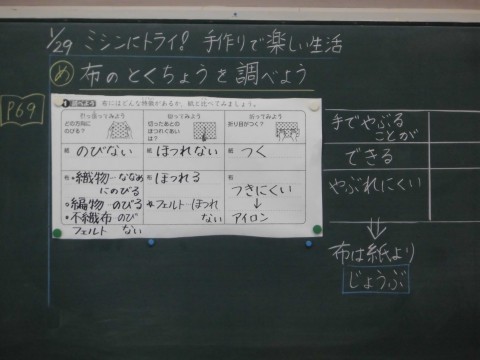 1/29 ミシンにトライ! 手作りで楽しい生活
め 布のとくちょうを調べよう
P69
1 調べよう 布にはどんな特徴があるか、紙と比べてみましょう。
引っ張ってみよう
どの方向に
のびる?
切ってみよう
切ったあとの
ほつれぐあい
は?
折ってみよう
折り目がつく?
紙 のびない
紙 ほつれない
紙 つく
布 ・織物…ななめ
にのびる
・編物…のびる
・不織布…のび
フェルト ない
布 ほつれる
・フェルト…ほつれ
ない
布 つきにくい
↓
アイロン
手でやぶる
ことが
できる
やぶれにくい
⇓
布は紙より
じょうぶ